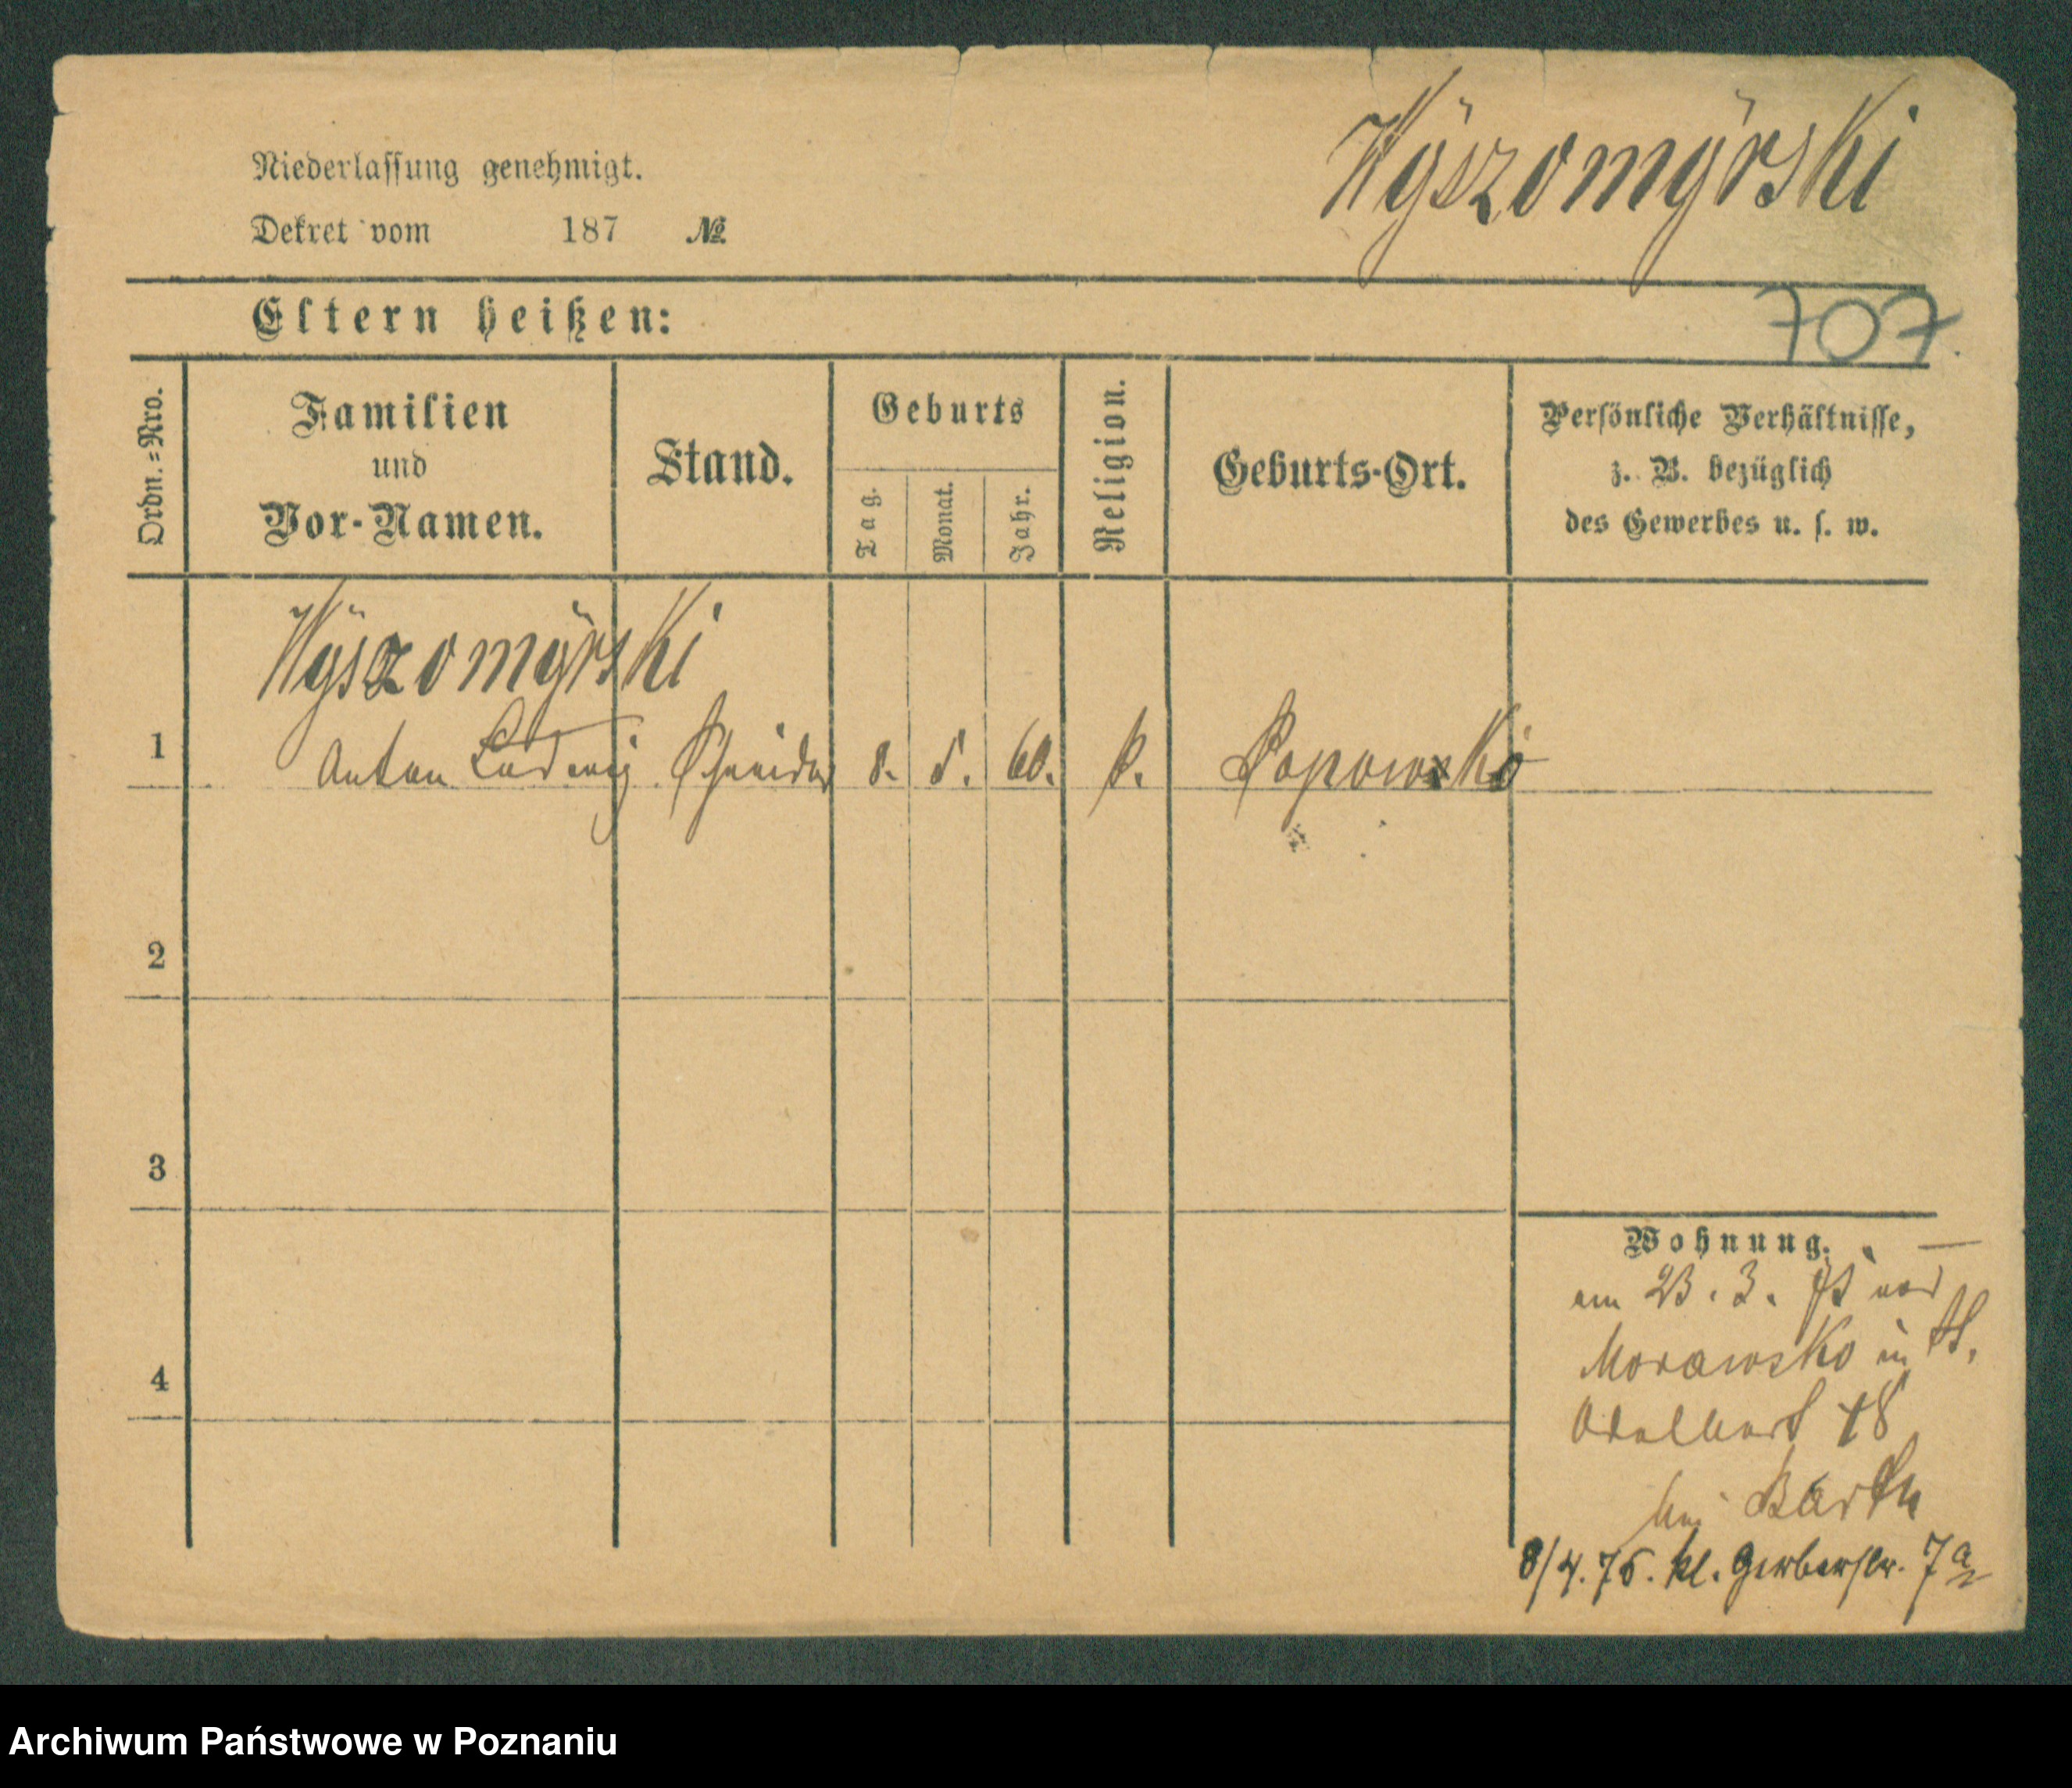 Wÿszomÿrski
Niederlassung genehmigt.
Dekret vom 187 №
Eltern heißen:
707.
Ordn.=Nro.
Familien
und
Vor-Namen.
Stand.
Geburts
Tag.
Monat.
Jahr.
Religion.
Geburts-Ort.
Persönliche Verhältnisse,
z. B. bezüglich
des Gewerbes u. s. w.
Wÿszomÿrski
1 Anton Ludwig Schneider 8. 5. 60. k. Popowko
2
3
4
Wohnung.
am 23. 3. 75 von
Morawsko in St.
Adalbert 48
bei Barth
8/4. 75. kl. Gerberstr. 7a
Archiwum Państwowe w Poznaniu